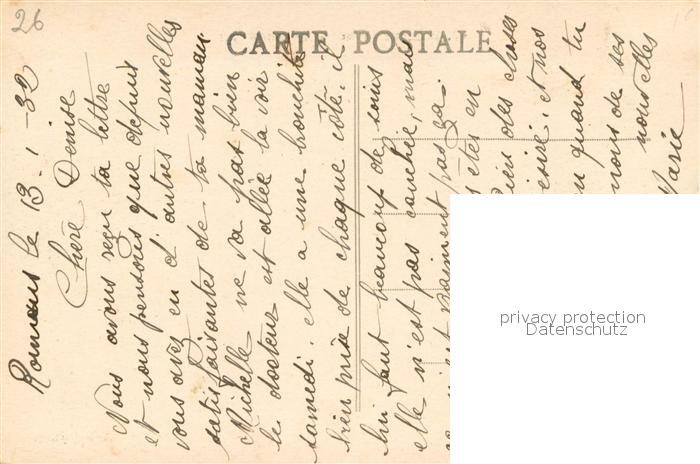 26
CARTE POSTALE
Romans le 13-1-32
Chère Denise
Nous avons reçu ta lettre
et nous pensons que depuis
vous avez eu d'autres nouvelles
satisfaisantes de ta maman
Michelle ne va pas bien
le docteur est allée la voir
samedi, elle a une bronchite
bien prise de chaque côté, il
lui faut beaucoup de soins
elle n'est pas couchée, mais
n'est vraiment pas ça.
êtes en
bien des choses
et nos
quand tu
de ses
nouvelles
Marie
privacy protection
Datenschutz